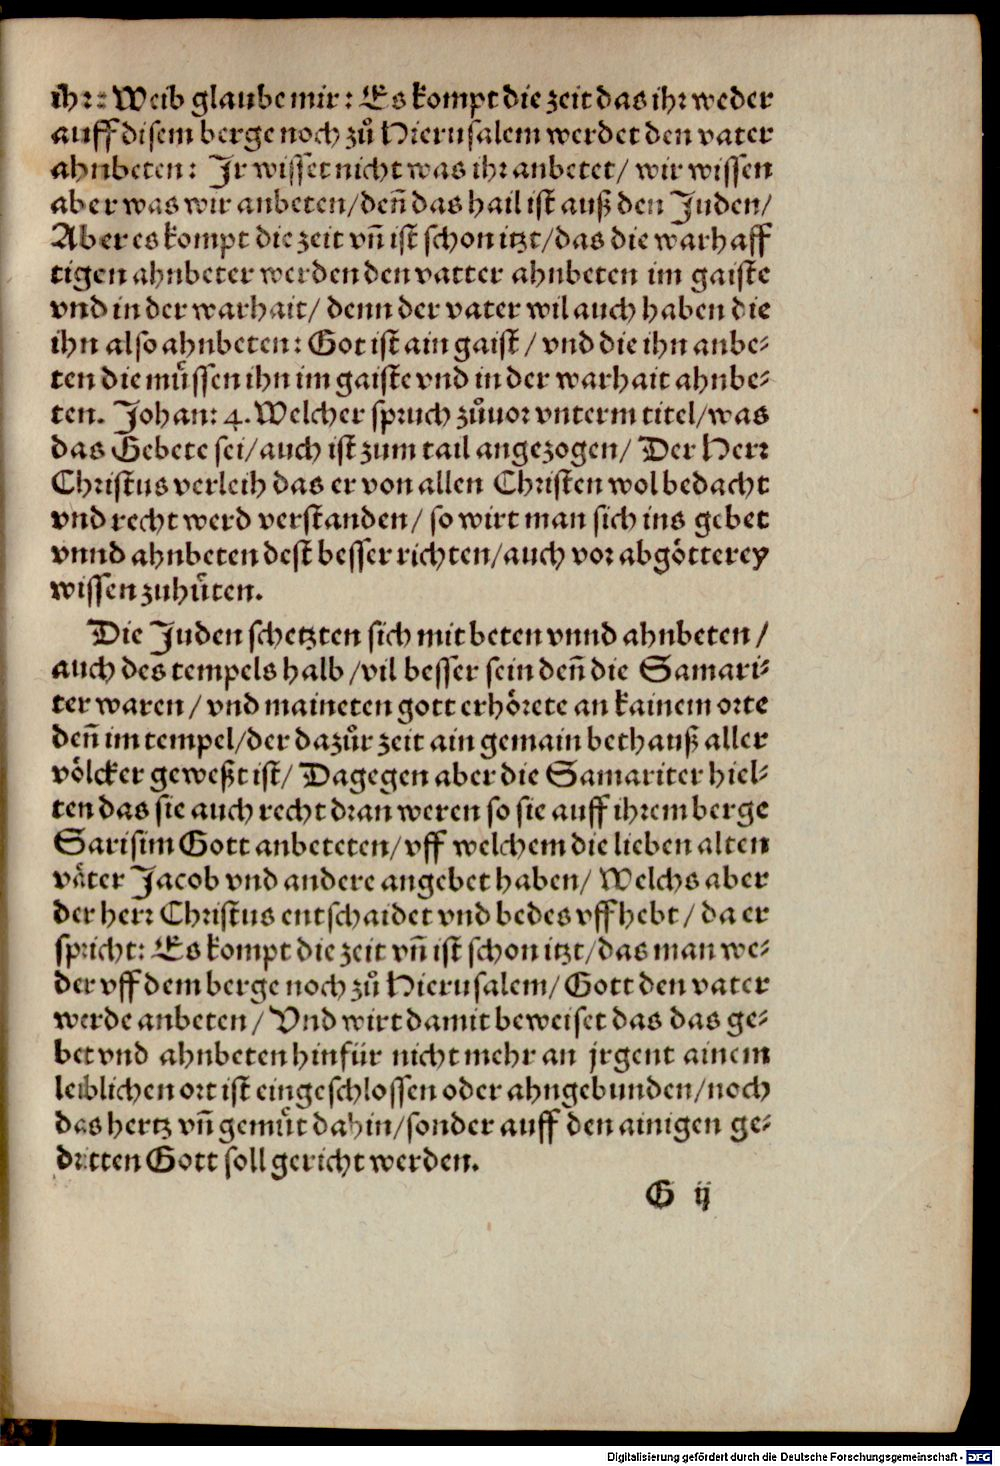 ihr: Weib glaube mir: Es kompt die zeit das ihr weder
auff disem berge noch zů Hierusalem werdet den vater
ahnbeten: Ir wisset nicht was ihr anbetet/ wir wissen
aber was wir anbeten/ deñ das hail ist auß den Juden/
Aber es kompt die zeit vñ ist schon itzt/ das die warhaff
tigen ahnbeter werden den vatter ahnbeten im gaiste
vnd in der warhait/ denn der vater wil auch haben die
ihn also ahnbeten: Got ist ain gaist/ vnd die ihn anbe⸗
ten die müssen ihn im gaiste vnd in der warhait ahnbe⸗
ten. Johan: 4. Welcher spruch zůuor vnterm titel/ was
das Gebete sei/ auch ist zum tail angezogen/ Der Herr
Christus verleih das er von allen Christen wol bedacht
vnd recht werd verstanden/ so wirt man sich ins gebet
vnnd ahnbeten dest besser richten/ auch vor abgötterey
wissen zuhüten.
Die Juden schetzten sich mit beten vnnd ahnbeten/
auch des tempels halb/ vil besser sein deñ die Samari⸗
ter waren/ vnd maineten gott erhörete an kainem orte
deñ im tempel/ der dazůr zeit ain gemain bethauß aller
völcker geweßt ist/ Dagegen aber die Samariter hiel⸗
ten das sie auch recht dran weren so sie auff ihrem berge
Sarisim Gott anbeteten/ vff welchem die lieben alten
väter Jacob vnd andere angebet haben/ Welchs aber
der herr Christus entschaidet vnd bedes vffhebt/ da er
spricht: Es kompt die zeit vñ ist schon itzt/ das man we⸗
der vff dem berge noch zů Hierusalem/ Gott den vater
werde anbeten/ Vnd wirt damit beweiset das das ge⸗
bet vnd ahnbeten hinfür nicht mehr an jrgent ainem
leiblichen ort ist eingeschlossen oder ahngebunden/ noch
das hertz vñ gemüt dahin/ sonder auff den ainigen ge⸗
dritten Gott soll gericht werden.
G ij
Digitalisierung gefördert durch die Deutsche Forschungsgemeinschaft - DFG